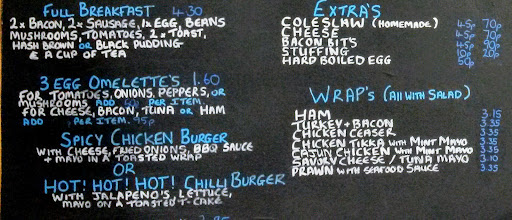 FULL BREAKFAST 4.30
2x BACON, 2x SAUSAGE, 1x EGG, BEANS
MUSHROOMS, TOMATOES, 2x TOAST,
HASH BROWN OR BLACK PUDDING
& A CUP OF TEA
3 EGG OMELETTE'S 1.60
FOR TOMATOES, ONIONS, PEPPERS, OR
MUSHROOMS ADD PER ITEM
FOR CHEESE, BACON, TUNA OR HAM
ADD PER ITEM. 95p
SPICY CHICKEN BURGER
WITH CHEESE, FRIED ONIONS, BBQ SAUCE
+ MAYO IN A TOASTED WRAP
OR
HOT! HOT! HOT! CHILLI BURGER
WITH JALAPENO'S, LETTUCE,
MAYO ON A TOASTED T-CAKE
EXTRA'S
COLESLAW (HOMEMADE) 45p 70p
CHEESE 45p 70p
BACON BITS 45p 90p
STUFFING 10p 20p
HARD BOILED EGG 50p
WRAP'S (All WITH SALAD)
HAM 3.15
TURKEY + BACON 3.35
CHICKEN CEASER 3.35
CHICKEN TIKKA WITH MINT MAYO 3.35
CAJUN CHICKEN WITH MINT MAYO 3.35
SAVORY CHEESE / TUNA MAYO 3.10
PRAWN WITH SEAFOOD SAUCE 3.35